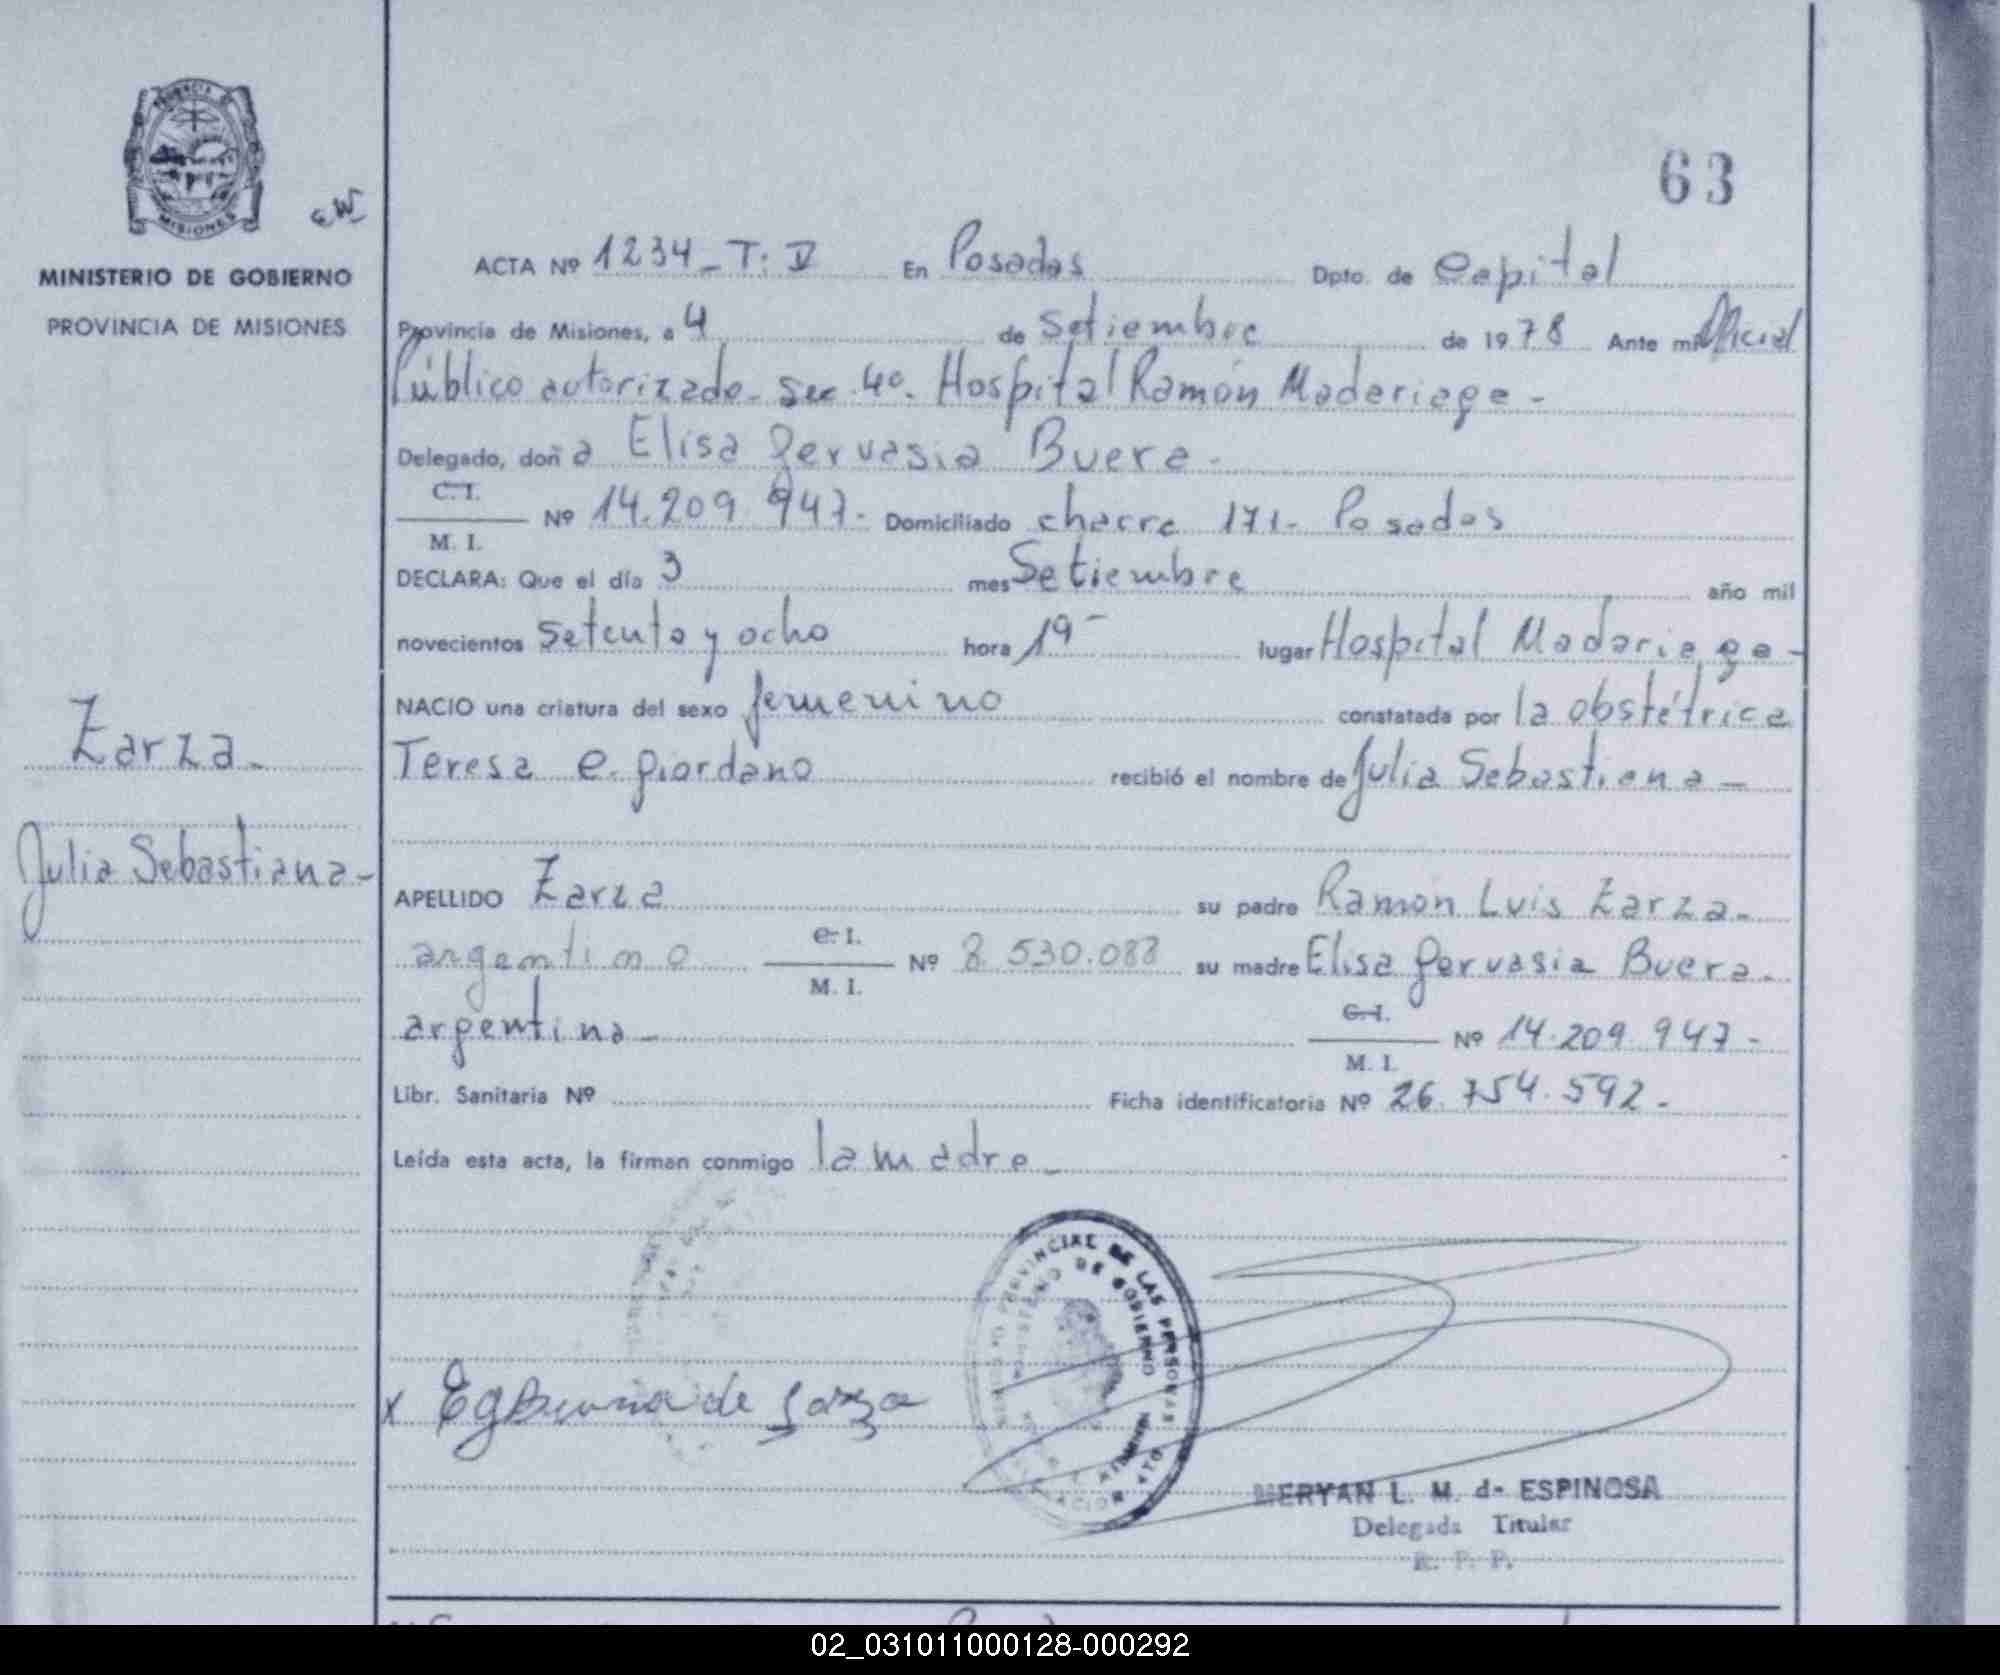 63
PROVINCIA DE
MISIONES
MINISTERIO DE GOBIERNO
PROVINCIA DE MISIONES
ACTA Nº 1234_ T: V En Posadas Dpto. de Capital
Provincia de Misiones, a 4 de Setiembre de 1978 Ante mi Oficial
Público autorizado- Sec. 4º. Hospital Ramón Madariaga-
Delegado, doña Elisa Gervasia Buera-
C. I.
Nº 14.209.947- Domiciliado chacra 171- Posadas
M. I.
DECLARA: Que el día 3 mes Setiembre año mil
novecientos setenta y ocho hora 19- lugar Hospital Madariaga-
NACIO una criatura del sexo femenino constatada por la obstétrica
Teresa C. Giordano recibió el nombre de Julia Sebastiana-
Zarza-
Julia Sebastiana-
APELLIDO Zarza su padre Ramón Luis Zarza-
argentino C. I. Nº 8.530.088 su madre Elisa Gervasia Buera-
M. I.
argentina- C. I. Nº 14.209.947-
M. I.
Libr. Sanitaria Nº Ficha identificatoria Nº 26.754.592-
Leída esta acta, la firman conmigo la madre-
PROVINCIAL DE LAS PERSONAS
DE GOBIERNO
x de
MERYAN L. M. de ESPINOSA
Delegada Titular
R. P. P.
02_031011000128-000292